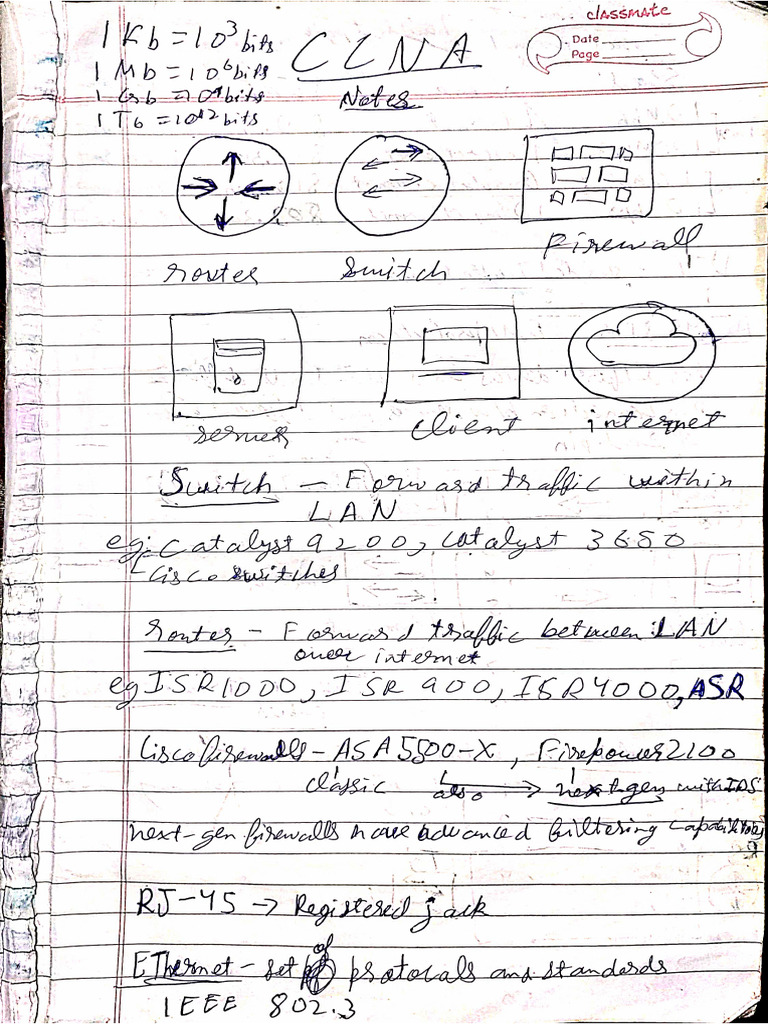 classmate
Date
Page
1 Kb = 10³ bits
1 Mb = 10⁶ bits
1 Gb = 10⁹ bits
1 Tb = 10¹² bits
CCNA
Notes
router switch Firewall
server client internet
Switch – Forward traffic within
LAN
eg:- Catalyst 9200, Catalyst 3650
Cisco switches
router – Forward traffic between LAN
over internet
eg ISR1000, ISR 900, ISR4000, ASR
Cisco firewalls – ASA5500-X, Firepower2100
classic also → next gen with IDS
next-gen firewalls have advanced filtering capabilities
RJ-45 → Registered jack
EThernet – set of protocals and standards
IEEE 802.3